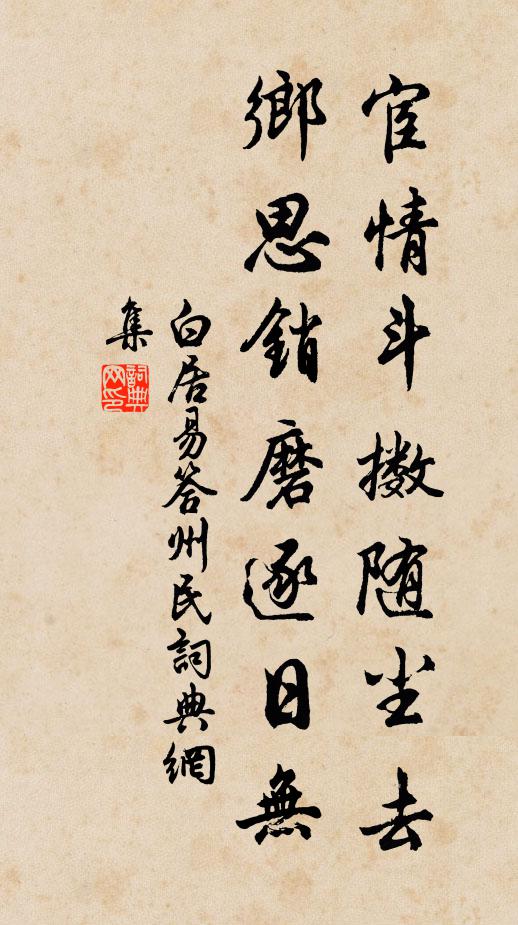 宦情斗擞随尘去
鄉思銷磨逐日無
白居易答州民詞典網
集
詞典
网印